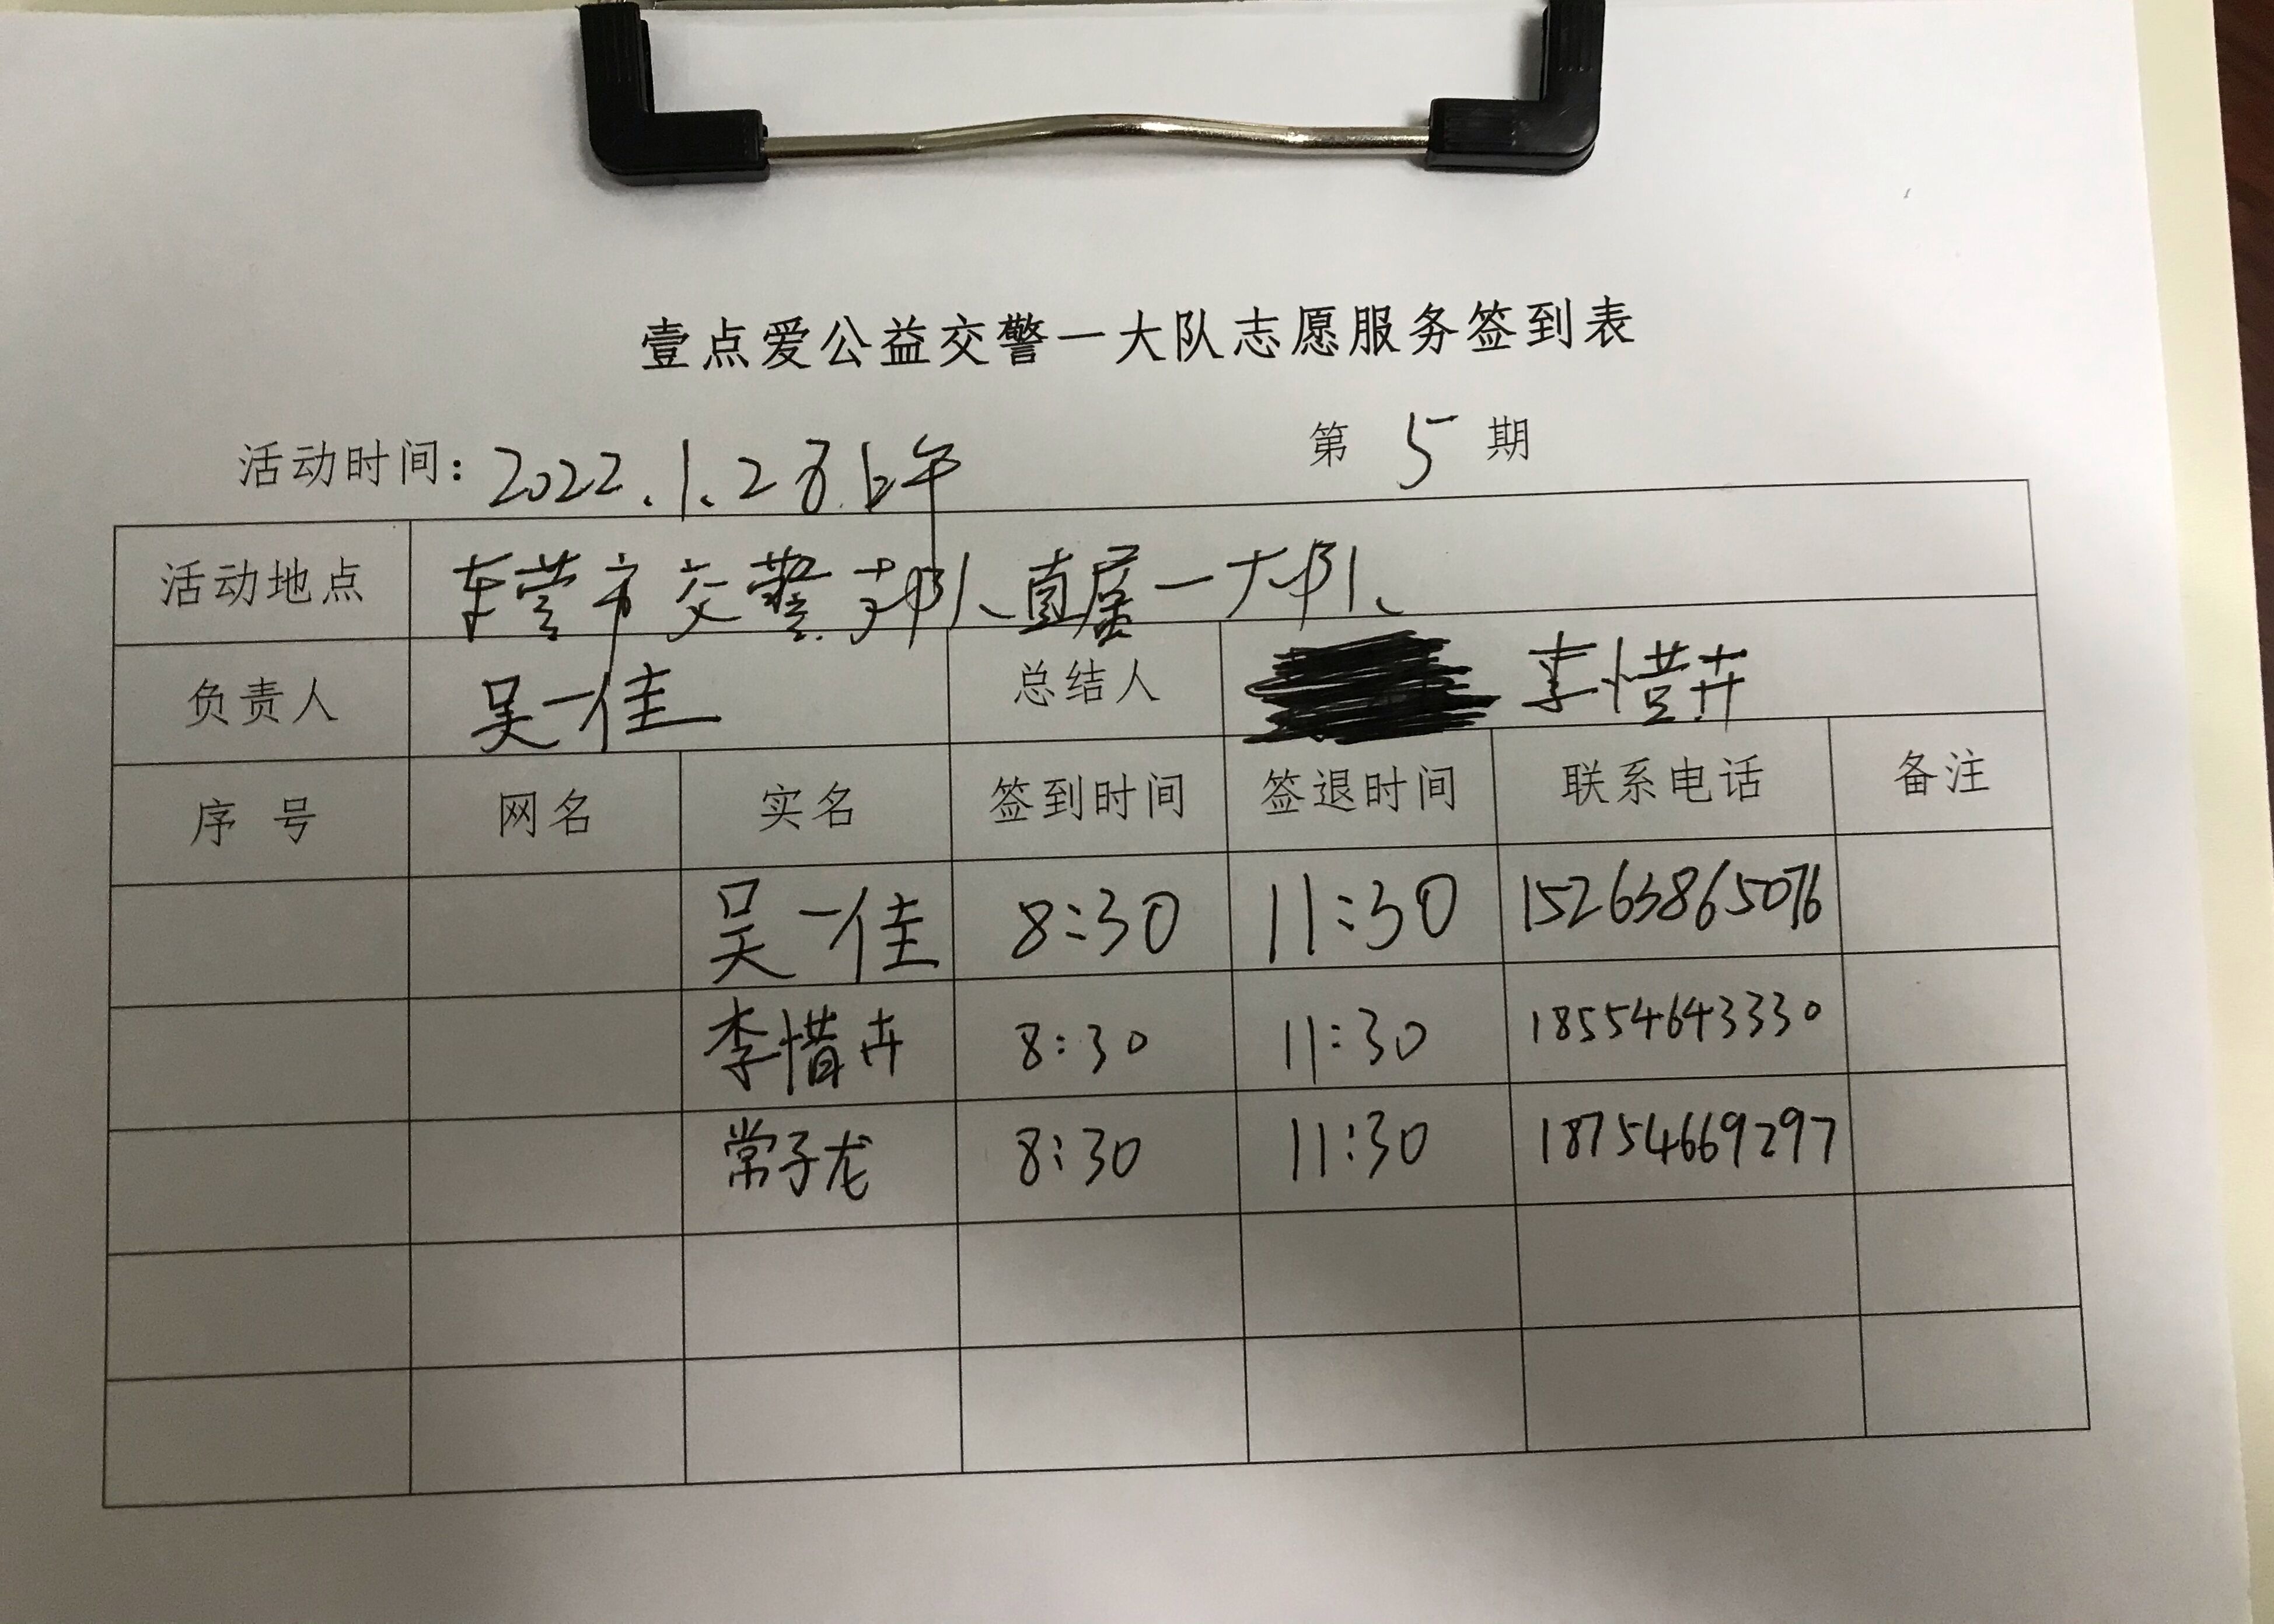 壹点爱公益交警一大队志愿服务签到表
活动时间: 2022.1.2 上午 第 5 期
活动地点 东营市交警支队直属一大队
负责人 吴一佳 总结人 李惜卉
序号 网名 实名 签到时间 签退时间 联系电话 备注
吴一佳 8:30 11:30 15263865076
李惜卉 8:30 11:30 18554643330
常子龙 8:30 11:30 18754669297